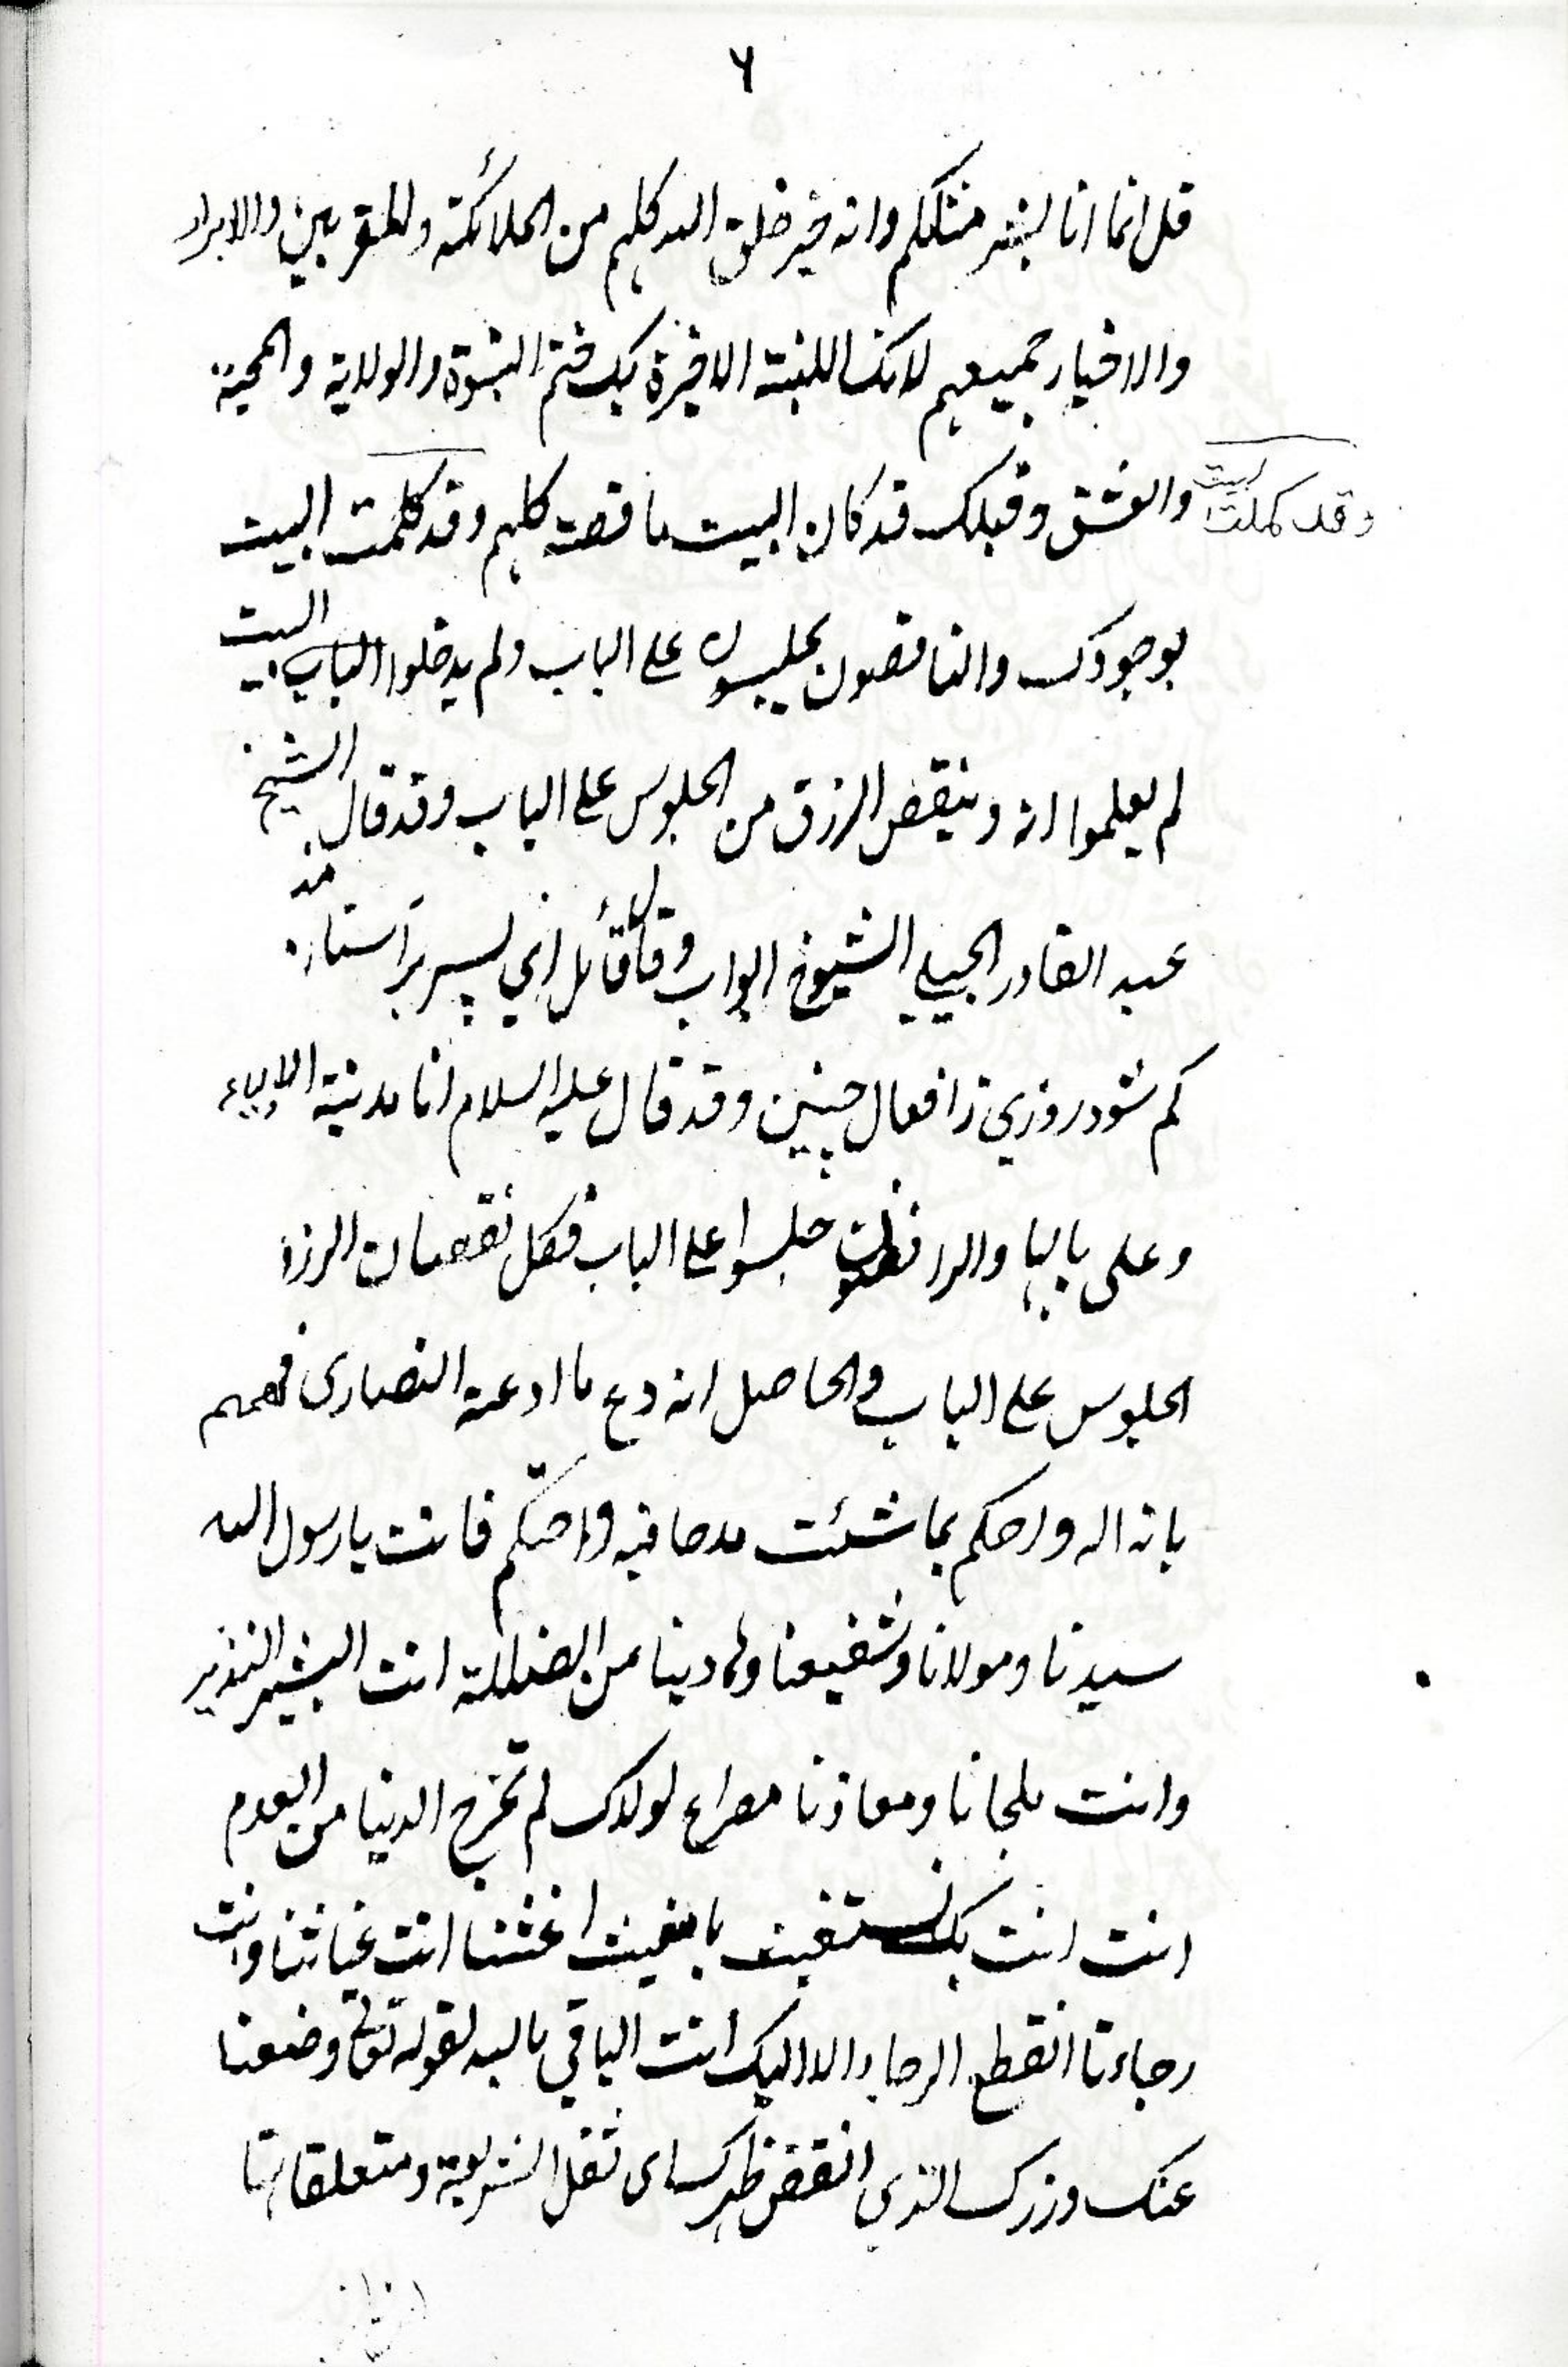 ٦
قل انما انا بشر مثلكم وانه خير خلق الله كلهم من الملائكة والمقربين والابرار
والاخيار جميعهم لانك اللبنة الاخيرة بك ختم النبوة والولاية والمحبة
والعشق وقبلك قد كان البيت ناقصة كلهم وقد كلمت البيت
وقد كملت البيت
بوجودك والناقصون يجلسون على الباب ولم يدخلوا الباب البيت
لم يعلموا انه وينقص الرزق من الجلوس على الباب وقد قال الشيخ
عبد القادر الجيلي الشيوخ ابواب وقال قائل اي پسر بر آستانه
كم شود روزي ز افعال چنين وقد قال عليه السلام انا مدينة
وعلى بابها والرافضون جلسوا على الباب فكل نقصان الرزق
الجلوس على الباب والحاصل انه دع ما ادعته النصارى فهمهم
بانه اله واحكم بما شئت مدحا فيه واحتكم فانت يا رسول الله
سيدنا ومولانا وشفيعنا وهادينا من الضلالة انت البشير النذير
وانت ملجانا ومعاذنا مصراع لولاك لم تخرج الدنيا من العدم
انت انت بك نستغيث يا مغيث اغثنا انت غياثنا وانت
رجاءنا انقطع الرجاء الا اليك انت الباقي بالله لقوله تعالى وضعنا
عنك وزرك الذي انقض ظهرك اى ثقل الشريعة ومتعلقاتها